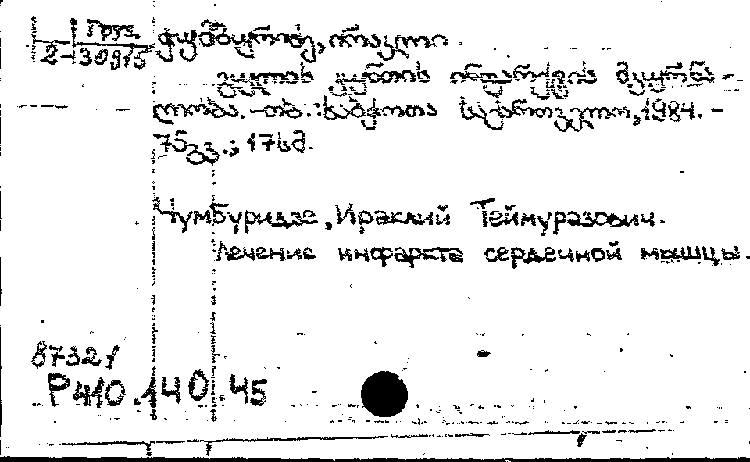 Груз.
2-309/5
ჭუმბურიძე, ირაკლი.
გულის კუნთის ინფარქტის მკურნა-
ლობა. -თბ.: საბჭოთა საქართველო, 1984. -
75გვ.; 17სმ.
Чумбуридзе, Ираклий Теймуразович.
Лечение инфаркта сердечной мышцы.
87321
Р410.140.45